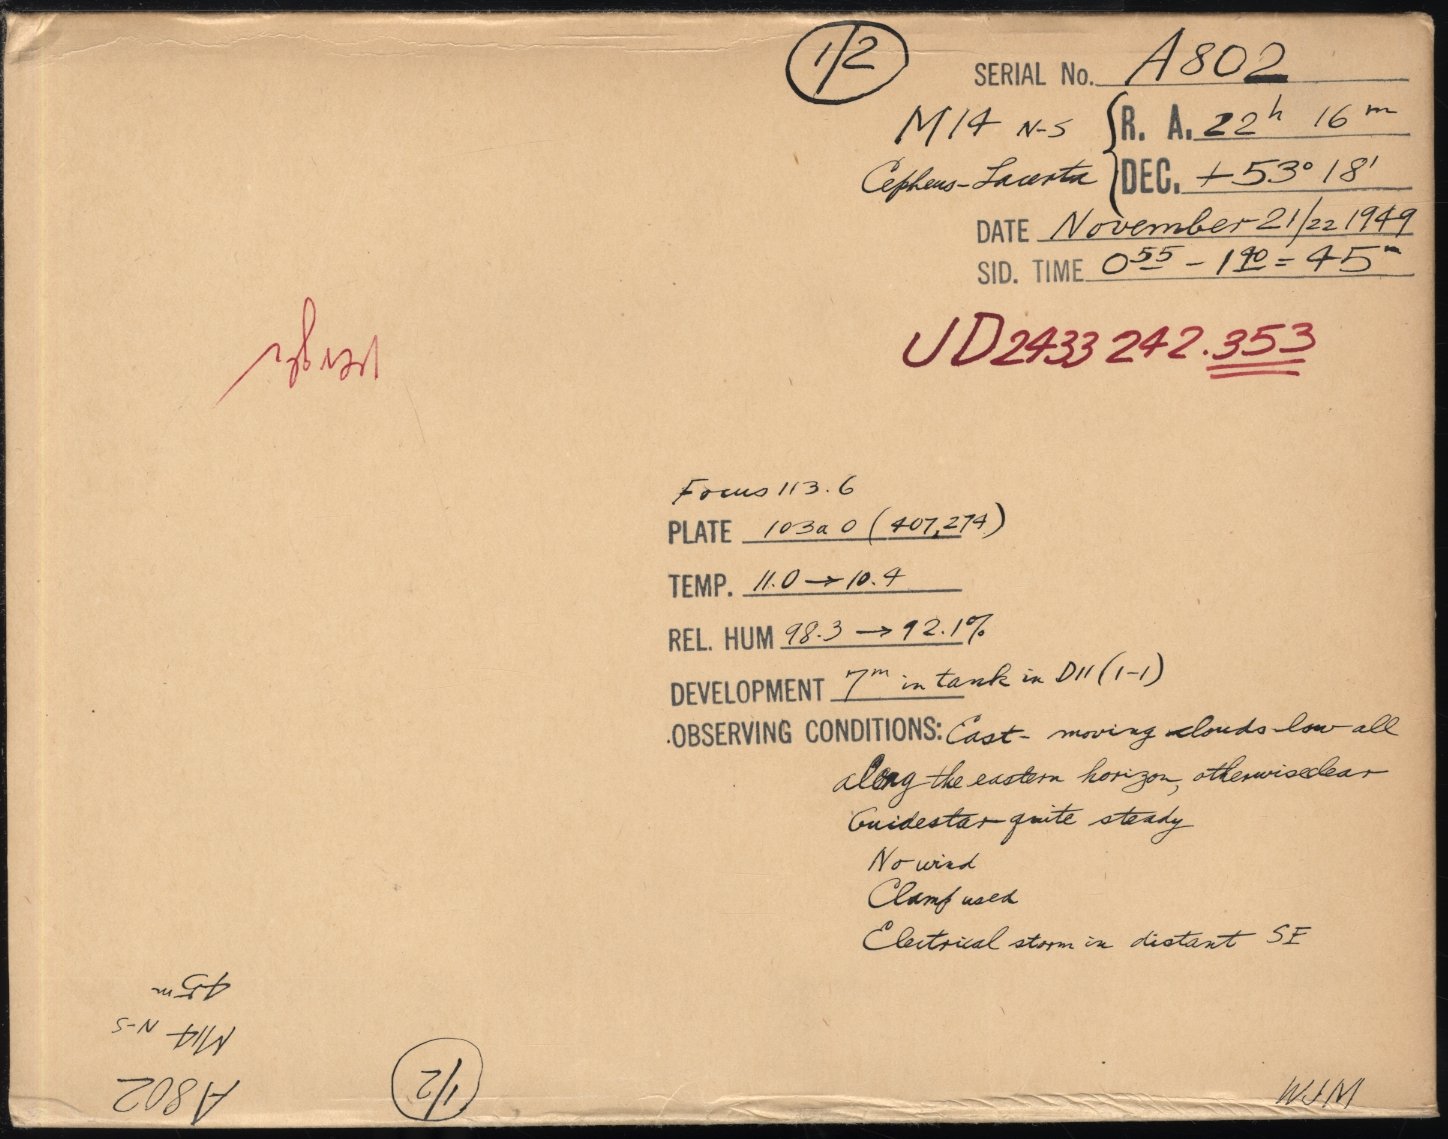 1/2
SERIAL No. A802
M14 N-S R. A. 22h 16m
Cepheus-Lacerta DEC. +53° 18'
DATE November 21/22 1949
SID. TIME 0 55 - 1 40 = 45m
JD2433242.353
Focus 113.6
PLATE 103a O (407,274)
TEMP. 11.0 → 10.4
REL. HUM 98.3 → 92.1%
DEVELOPMENT 7m in tank in D11 (1-1)
OBSERVING CONDITIONS: East-moving clouds low all
along the eastern horizon, otherwise clear
Guidestar quite steady
No wind
Clamp used
Electrical storm in distant SE
45m
M14 N-S
A802
1/2
WJM